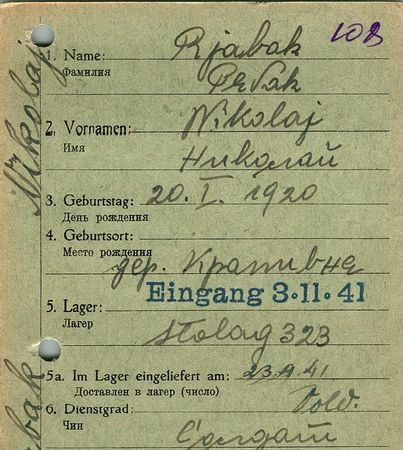 108
1. Name: Rjabak
Фамилия Рябак
2. Vornamen: Nikolaj
Имя Николай
3. Geburtstag: 20. I. 1920
День рождения
4. Geburtsort:
Место рождения дер. Крапивна
Eingang 3.11.41
5. Lager:
Лагерь Stalag 323
5a. Im Lager eingeliefert am: 23.9.41
Доставлен в лагерь (число)
6. Dienstgrad: Sold.
Чин Солдат
Nikolaj